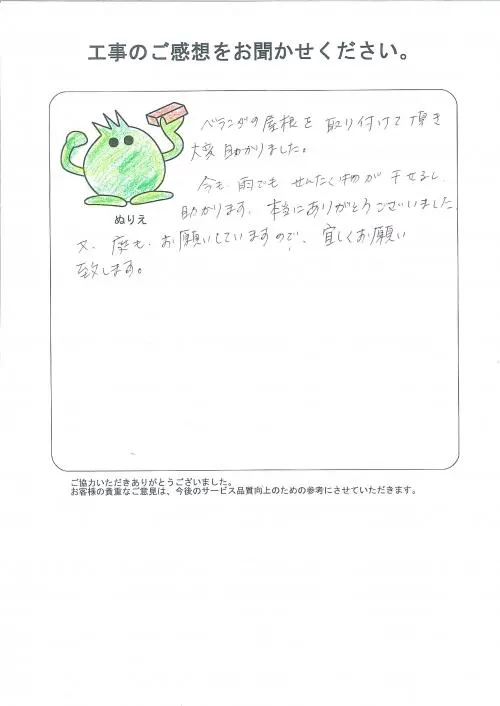 工事のご感想をお聞かせください。
ベランダの屋根を取り付けて頂き
大変助かりました。
今も、雨でもせんたく物が干せるし、
助かります。本当にありがとうございました。
ぬりえ
又、庭も、お願いしていますので、宜しくお願い
致します。
ご協力いただきありがとうございました。
お客様の貴重なご意見は、今後のサービス品質向上のための参考にさせていただきます。